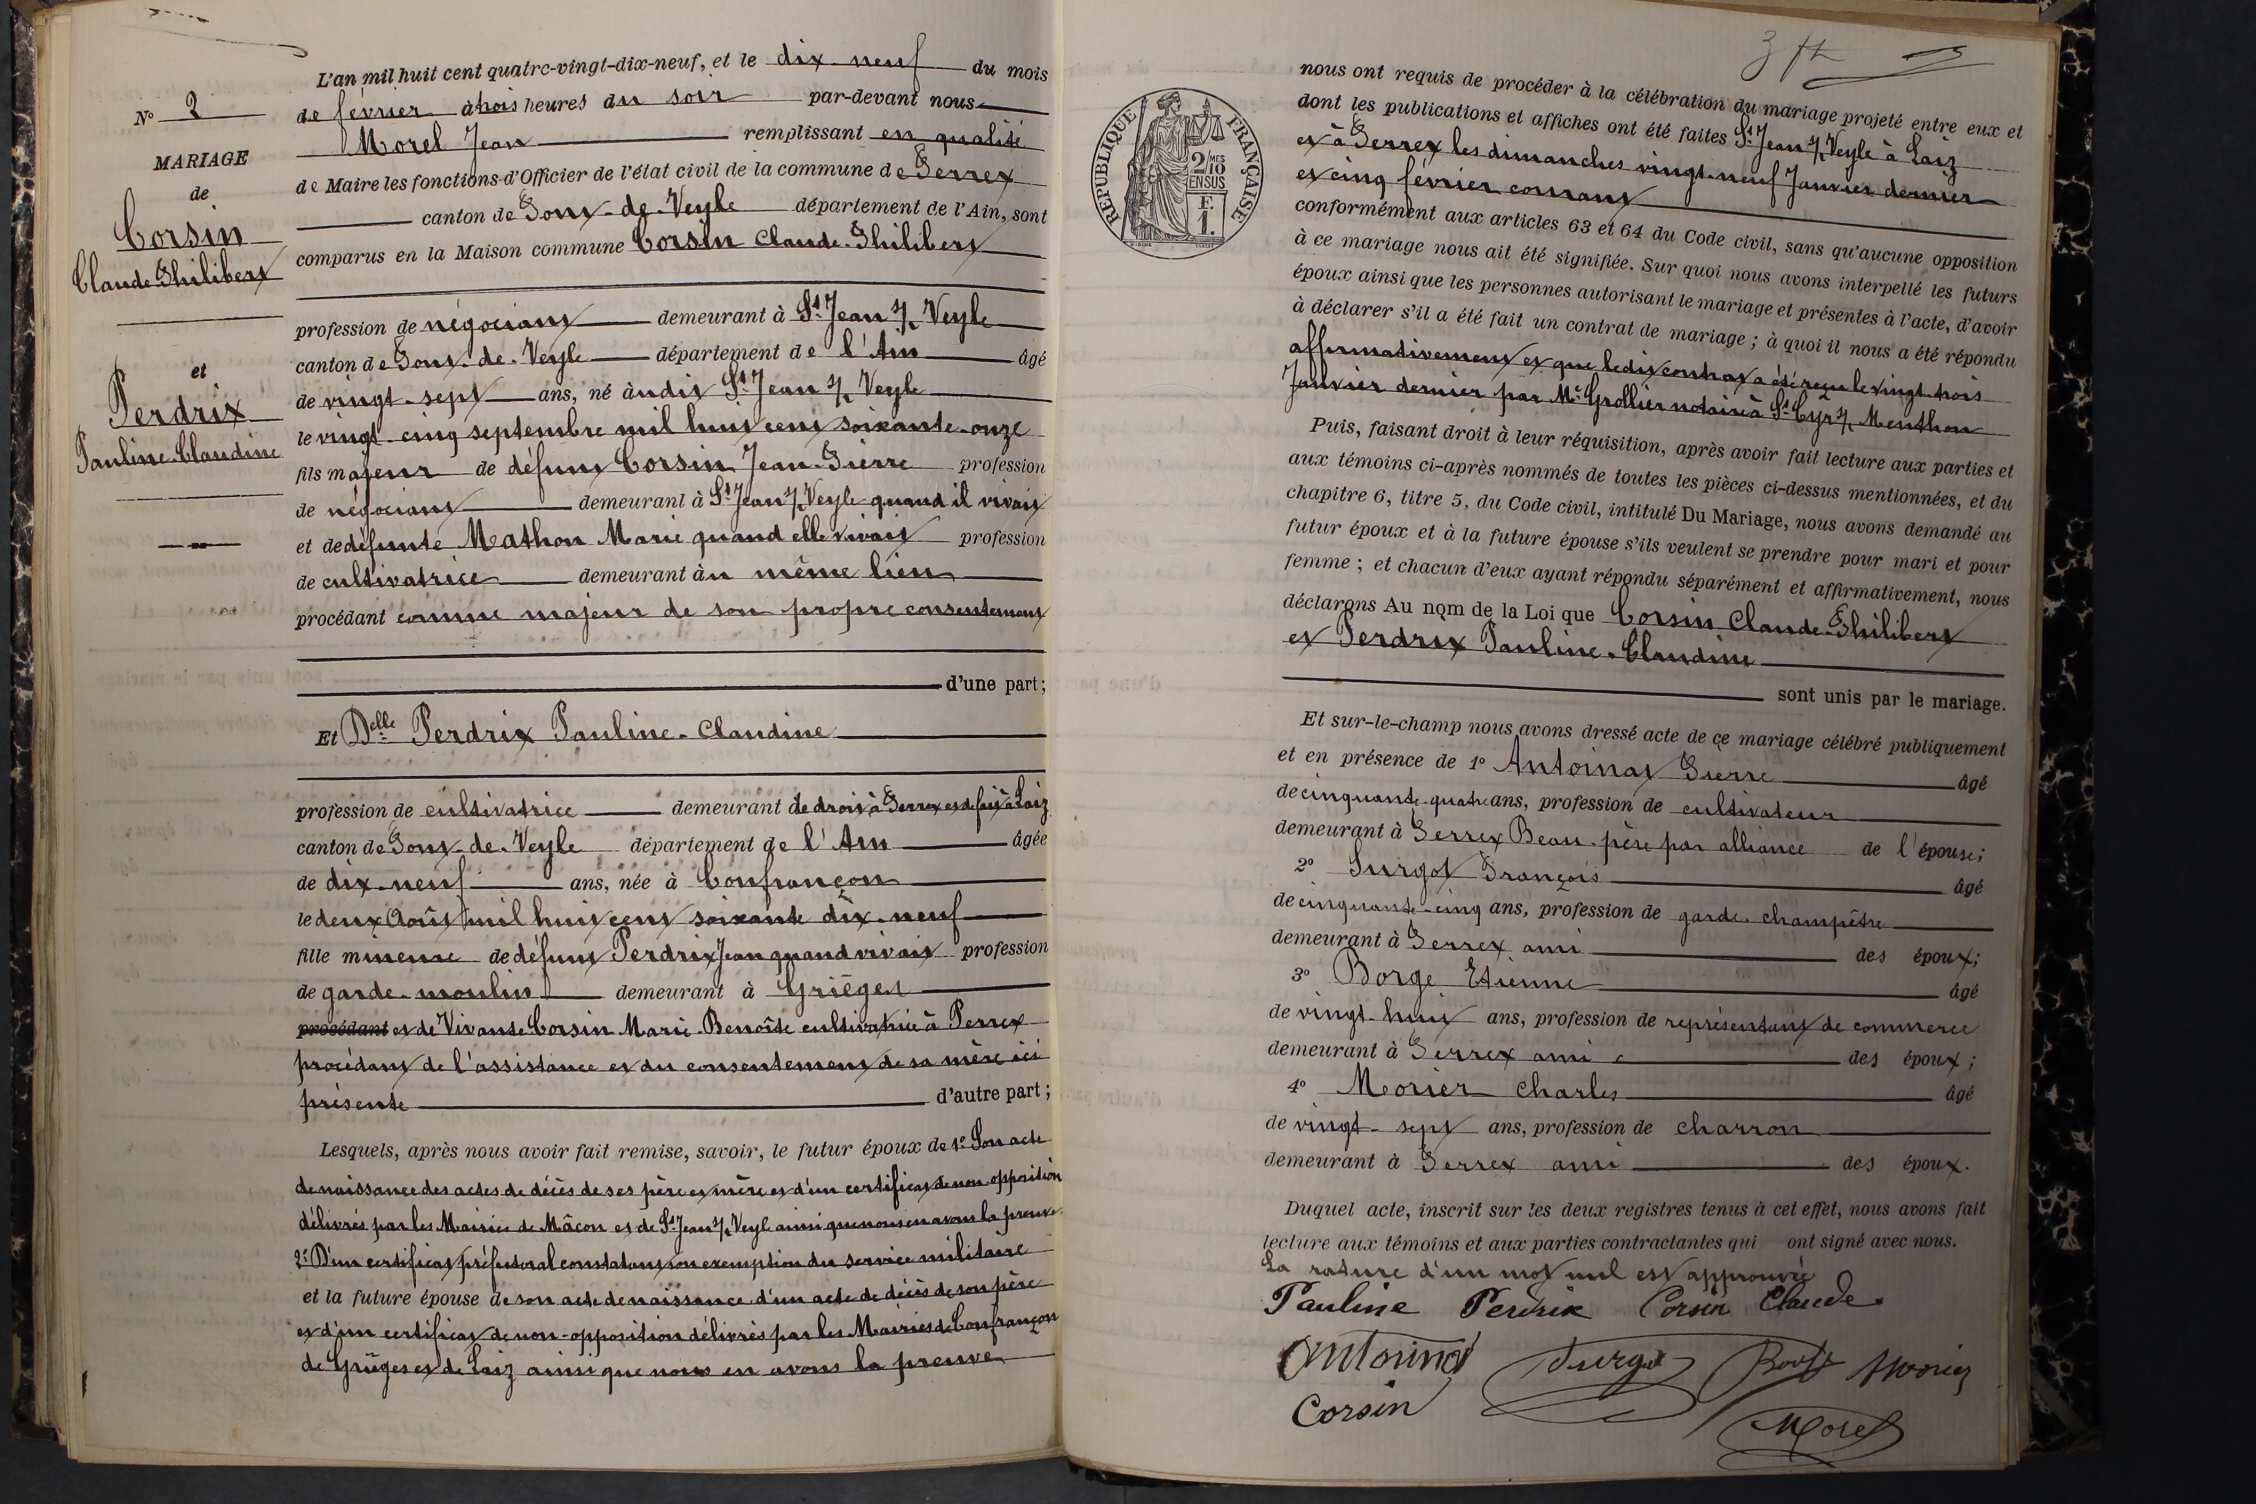 L'an mil huit cent quatre-vingt-dix-neuf, et le dix-neuf du mois
de février à trois heures du soir par-devant nous
Morel Jean remplissant en qualité
de Maire les fonctions d'Officier de l'état civil de la commune de Perrex
canton de Pont-de-Veyle département de l'Ain, sont
comparus en la Maison commune Corsin Claude-Philibert
profession de négociant demeurant à St Jean s/ Veyle
canton de Pont-de-Veyle département de l'Ain âgé
de vingt-sept ans, né àudit St Jean s/ Veyle
le vingt-cinq septembre mil huit cent soixante-onze
fils majeur de défunt Corsin Jean-Pierre profession
de négociant demeurant à St Jean s/ Veyle quand il vivait
et de défunte Mathon Marie quand elle vivait profession
de cultivatrice demeurant àu même lieu
procédant comme majeur de son propre consentement
d'une part ;
Et Delle Perdrix Pauline-Claudine
profession de cultivatrice demeurant de droit à Perrex et de fait à Laiz
canton de Pont-de-Veyle département de l'Ain âgée
de dix-neuf ans, née à Confrançon
le deux Août mil huit cent soixante dix-neuf
fille mineure de défunt Perdrix Jean quand vivait profession
de garde-moulin demeurant à Grièges
procédant et de Vivante Corsin Marie-Benoîte cultivatrice à Perrex
procédant de l'assistance et du consentement de sa mère ici
présente d'autre part ;
Lesquels, après nous avoir fait remise, savoir, le futur époux de 1° Son acte
de naissance des actes de décès de ses père et mère et d'un certificat de non-opposition
délivrés par les Mairies de Mâcon et de St Jean s/ Veyle ainsi que nous en avons la preuve
2° D'un certificat préfectoral constatant son exemption du service militaire
et la future épouse de son acte de naissance d'un acte de décès de son père
et d'un certificat de non-opposition délivrés par les Mairies de Confrançon
de Grièges et de Laiz ainsi que nous en avons la preuve
N° 2
MARIAGE
de
Corsin
Claude-Philibert
et
Perdrix
Pauline-Claudine
RÉPUBLIQUE FRANÇAISE
2/MES
10
EN SUS
F.
1.
nous ont requis de procéder à la célébration du mariage projeté entre eux et
dont les publications et affiches ont été faites St Jean s/ Veyle à Laiz
et à Perrex les dimanches vingt-neuf Janvier dernier
et cinq février courant
conformément aux articles 63 et 64 du Code civil, sans qu'aucune opposition
à ce mariage nous ait été signifiée. Sur quoi nous avons interpellé les futurs
époux ainsi que les personnes autorisant le mariage et présentes à l'acte, d'avoir
à déclarer s'il a été fait un contrat de mariage ; à quoi il nous a été répondu
affirmativement et que ledit contrat a été reçu le vingt-trois
Janvier dernier par Me Grollier notaire à St Cyr s/ Menthon
Puis, faisant droit à leur réquisition, après avoir fait lecture aux parties et
aux témoins ci-après nommés de toutes les pièces ci-dessus mentionnées, et du
chapitre 6, titre 5, du Code civil, intitulé Du Mariage, nous avons demandé au
futur époux et à la future épouse s'ils veulent se prendre pour mari et pour
femme ; et chacun d'eux ayant répondu séparément et affirmativement, nous
déclarons Au nom de la Loi que Corsin Claude-Philibert
et Perdrix Pauline-Claudine
sont unis par le mariage.
Et sur-le-champ nous avons dressé acte de ce mariage célébré publiquement
et en présence de 1° Antoinat Pierre âgé
de cinquante-quatre ans, profession de cultivateur
demeurant à Perrex Beau-père par alliance de l'épouse ;
2° Surgot François âgé
de cinquante-cinq ans, profession de garde-champêtre
demeurant à Perrex ami des époux ;
3° Borge Etienne âgé
de vingt-huit ans, profession de représentant de commerce
demeurant à Perrex ami des époux ;
4° Morier Charles âgé
de vingt-sept ans, profession de charron
demeurant à Perrex ami des époux.
Duquel acte, inscrit sur les deux registres tenus à cet effet, nous avons fait
lecture aux témoins et aux parties contractantes qui ont signé avec nous.
La rature d'un mot nul est approuvée
Pauline Perdrix Corsin Claude
Antoinat Surgot Morier
Corsin Morel